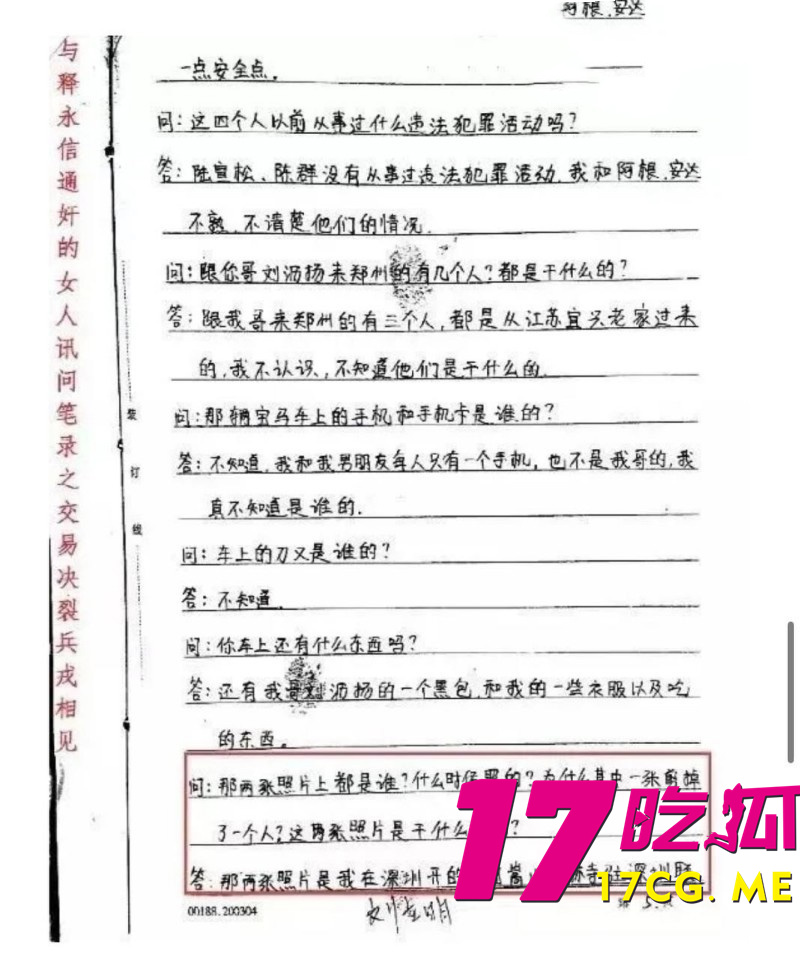 阿根、安达
一点安全点。
问：这四个人以前从事过什么违法犯罪活动吗？
答：陆宣松、陈群没有从事过违法犯罪活动，我和阿根、安达
不熟，不清楚他们的情况。
问：跟你哥刘沥扬来郑州的有几个人？都是干什么的？
答：跟我哥来郑州的有三个人，都是从江苏宜兴老家过来
的，我不认识，不知道他们是干什么的。
问：那辆宝马车上的手机和手机卡是谁的？
答：不知道，我和我男朋友每人只有一个手机，也不是我哥的，我
真不知道是谁的。
问：车上的刀又是谁的？
答：不知道。
问：你车上还有什么东西吗？
答：还有我哥刘沥扬的一个黑包，和我的一些衣服以及吃
的东西。
问：那两张照片上都是谁？什么时候照的？为什么其中一张剪掉
了一个人？这两张照片是干什么？
答：那两张照片是我在深圳开的 嵩 驻深圳
00188.200304
与释永信通奸的女人讯问笔录之交易决裂兵戎相见
装订线
17吃狐
17CG.ME